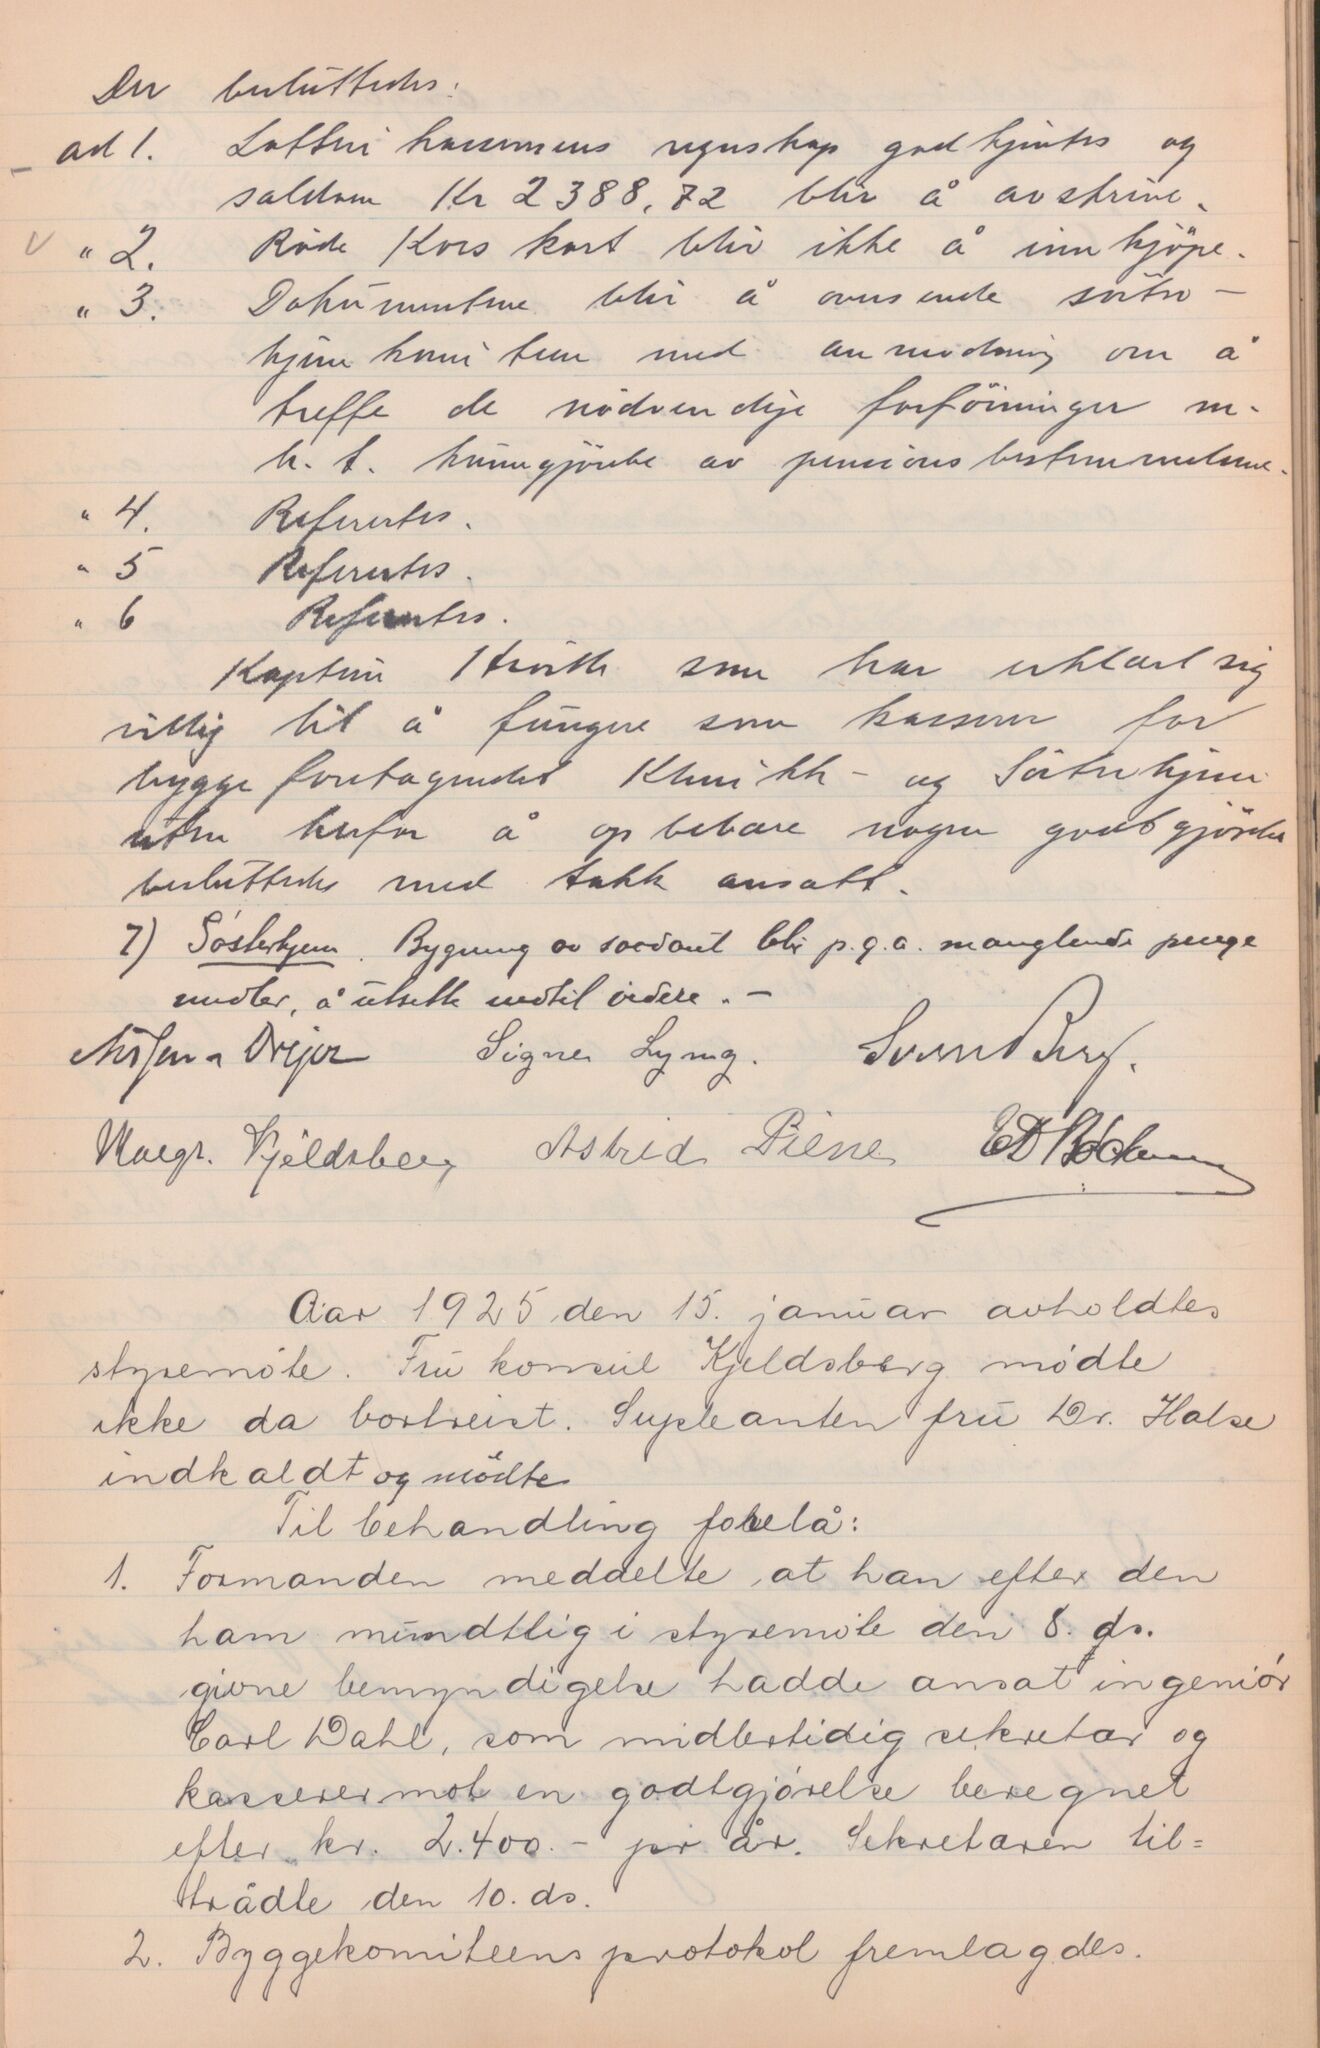 Der besluttedes:
ad 1. Lotteri kassemens regnskap godkjentes og
saldoen Kr 2388,72 blir å avskrive.
" 2. Røde Kors kort blir ikke å innkjöpe.
" 3. Dokumentene blir å oversende söster-
hjemkomiteen med anmodning om å
treffe de nödvendige forföininger m.
h. t. kunngjörelse av pensionsbestemmelsene.
" 4. Refereertes.
" 5 Refereertes.
" 6 Refereertes.
Kaptein som har erklært sig
villig til å fungere som kasserer for
byggeforetagendet Klinikk- og Sösterhjem
uten herfor å opbebære nogen godtgjörelse
besluttedes med takk ansatt.
7) Søsterhjem. Bygning av saadant blir p.g.a. manglende penge
midler, å utsette indtil videre. -
Drejer Signe Lyng. Sverre Berg.
Margr. Kjeldsberg Astrid Piene
Aar 1925 den 15. januar avholdtes
styremöte. Fru konsul Kjeldsberg mødte
ikke da bortreist. Supleanten fru Dr. Halse
indkaldt og mödte
Til behandling forelå:
1. Formanden meddelte at han efter den
ham mundtlig i styremöte den 8. ds.
givne bemyndigelse hadde ansat ingeniør
Carl Dahl, som midlertidig sekretær og
kasserer mot en godtgjørelse beregnet
efter kr. 2.400.- pr år. Sekretæren til=
trådte den 10. ds.
2. Byggekomiteens protokol fremlagdes.